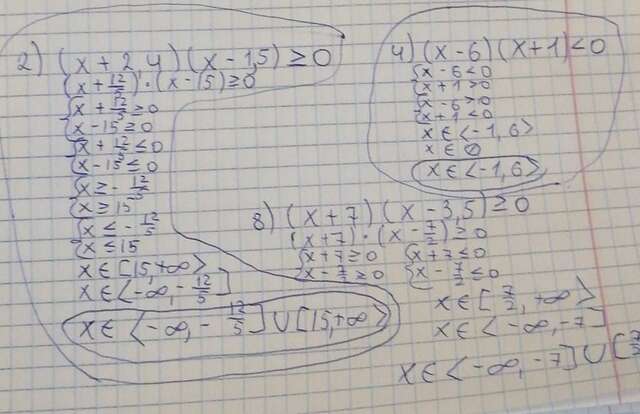 2) (x + 2,4)(x - 1,5) ≥ 0
(x + 12/5) · (x - 15) ≥ 0
{x + 12/5 ≥ 0
{x - 15 ≥ 0
{x + 12/5 ≤ 0
{x - 15 ≤ 0
{x ≥ - 12/5
{x ≥ 15
{x ≤ - 12/5
{x ≤ 15
x ∈ [15, +∞>
x ∈ <-∞, - 12/5]
x ∈ <-∞, - 12/5] ∪ [15, +∞>
4) (x - 6)(x + 1) < 0
{x - 6 < 0
{x + 1 > 0
{x - 6 > 0
{x + 1 < 0
x ∈ <-1, 6>
x ∈ ∅
x ∈ <-1, 6>
8) (x + 7)(x - 3,5) ≥ 0
(x + 7) · (x - 7/2) ≥ 0
{x + 7 ≥ 0 {x + 7 ≤ 0
{x - 7/2 ≥ 0 {x - 7/2 ≤ 0
x ∈ [7/2, +∞>
x ∈ <-∞, -7]
x ∈ <-∞, -7] ∪ [